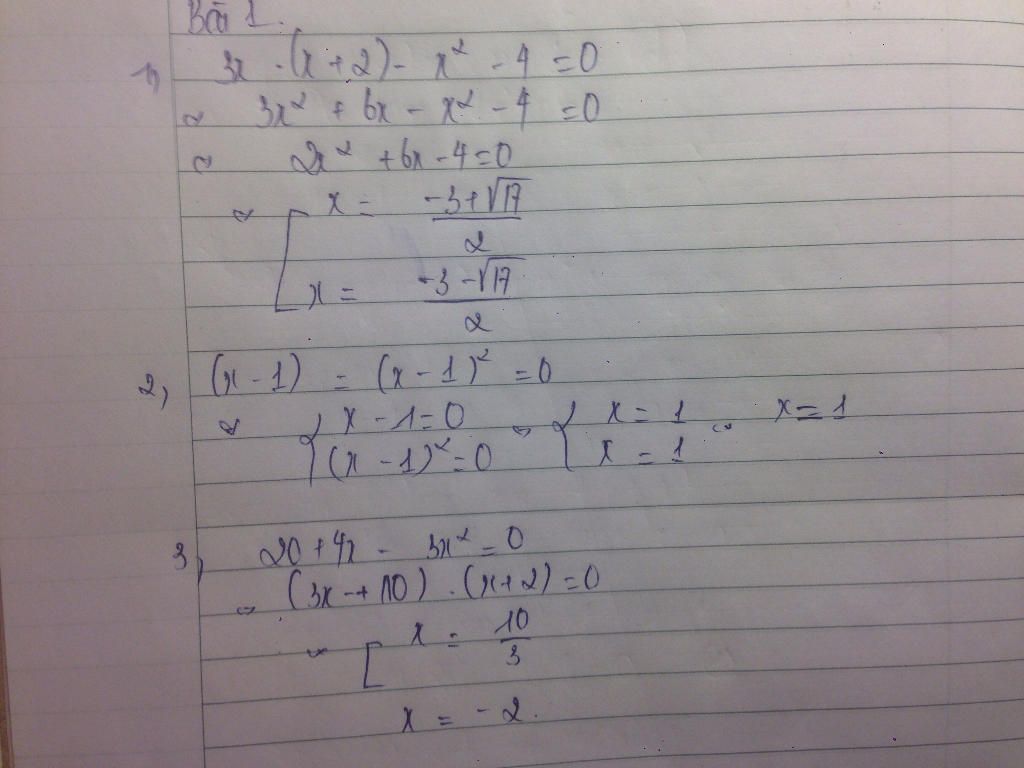 Bài 1.
1, 3x . (x + 2) - x² - 4 = 0
⇔ 3x² + 6x - x² - 4 = 0
⇔ 2x² + 6x - 4 = 0
⇔ [ x = (-3 + √17)/2
x = (-3 - √17)/2
2, (x - 1) = (x - 1)² = 0
⇔ { x - 1 = 0 ⇔ { x = 1 ⇔ x = 1
(x - 1)² = 0 x = 1
3, 20 + 4x - 3x² = 0
⇔ (3x - 10) . (x + 2) = 0
⇔ [ x = 10/3
x = -2.